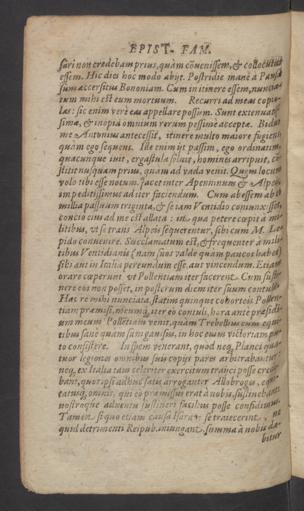 EPIST. FAM.
suri non credebam prius, quàm cōuenissem, & collocutus
essem. Hic dies hoc modo abijt. Postridie manè à Pansa
sum accersitus Bononiam. Cum in itinere essem, nuncia-
tum mihi est eum mortuum. Recurri ad meas copio-
las: sic enim verè eas appellare possum. Sunt extenuatis-
simæ, & inopia omnium rerum pessimè acceptæ. Bidu
me Antonius antecessit, itinera multò maiora fugiens,
quàm ego sequens. Ille enim ijt passim, ego ordinatim.
quacunque iuit, ergastula soluit, homines arripuit, co-
stitit nusquam prius, quàm ad vada venit. Quem locum
volo tibi esse notum. Iacet inter Apenninum & Alpes
impeditissimus ad iter faciendum. Cum abessem ab eo
millia passuum triginta, & se iam Ventidio coniunxisset,
concio eius ad me est allata: in qua petere cœpit à mi-
litibus, vt se trans Alpeis sequerentur, sibi cum M. Le-
pido conuenire. Succlamatum est, & frequenter à mili-
tibus Ventidianis (nam suos valdè quàm paucos habet)
sibi aut in Italia pereundum esse, aut vincendum. Et
orare cœperunt vt Pollentiam iter facerent. Cum sustine-
nere eos non posset, in posterum diem iter suum contulit.
Hac re mihi nunciata, statim quinque cohorteis Pollen-
tiam præmisi, meumq; iter eò contuli. hora antè præsidi-
um meum Pollentiam venit, quàm Trebellius cum equi-
tibus. sanè quàm sum gauisus, in hoc enim victoriam pu-
to consistere. In spem venerant, quòd neq; Planci quat-
tuor legiones omnibus suis copijs pares arbitrabantur:
neq; ex Italia tam celeriter exercitum traijci posse crede-
bant, quos ipsi adhuc satis arroganter Allobroges, equi-
tatusq; omnis, qui eò præmissus erat à nobis, sustinebant:
nostroque aduentu sustineri facilius posse confidimus.
Tamen si quo etiam casu Isaram se traiecerint, ne
quid detrimenti Reipub. iniungant, summa à nobis da-
bitur